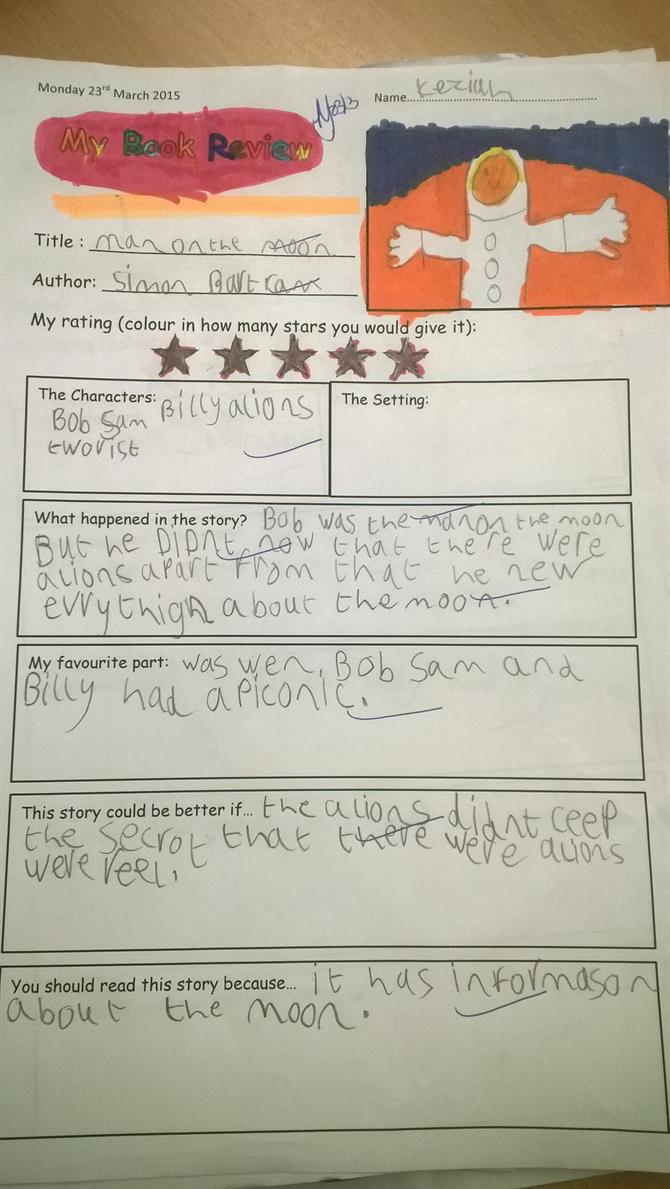 Monday 23rd March 2015
Name Keziah
My Book Review
Title : man on the moon
Author: Simon Bartram
My rating (colour in how many stars you would give it):
The Characters:
Bob Sam Billy alions
tworist
The Setting:
What happened in the story? Bob was the man on the moon
But he DiDnt now that there were
alions apart from that he new
evrythign about the moon.
My favourite part: was wen Bob Sam and
Billy had a piconic.
This story could be better if... the alions didnt ceep
the secrot that there were alions
were reel.
You should read this story because... it has informason
about the moon.